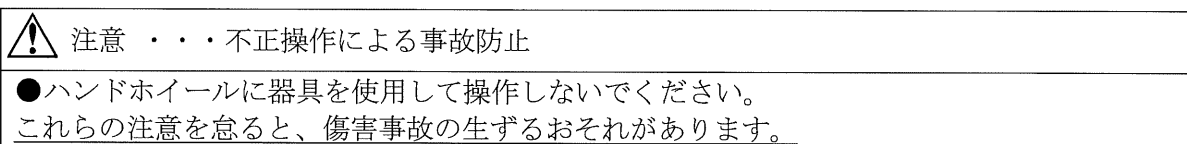 注意 ・・・不正操作による事故防止
●ハンドホイールに器具を使用して操作しないでください。
これらの注意を怠ると、傷害事故の生ずるおそれがあります。